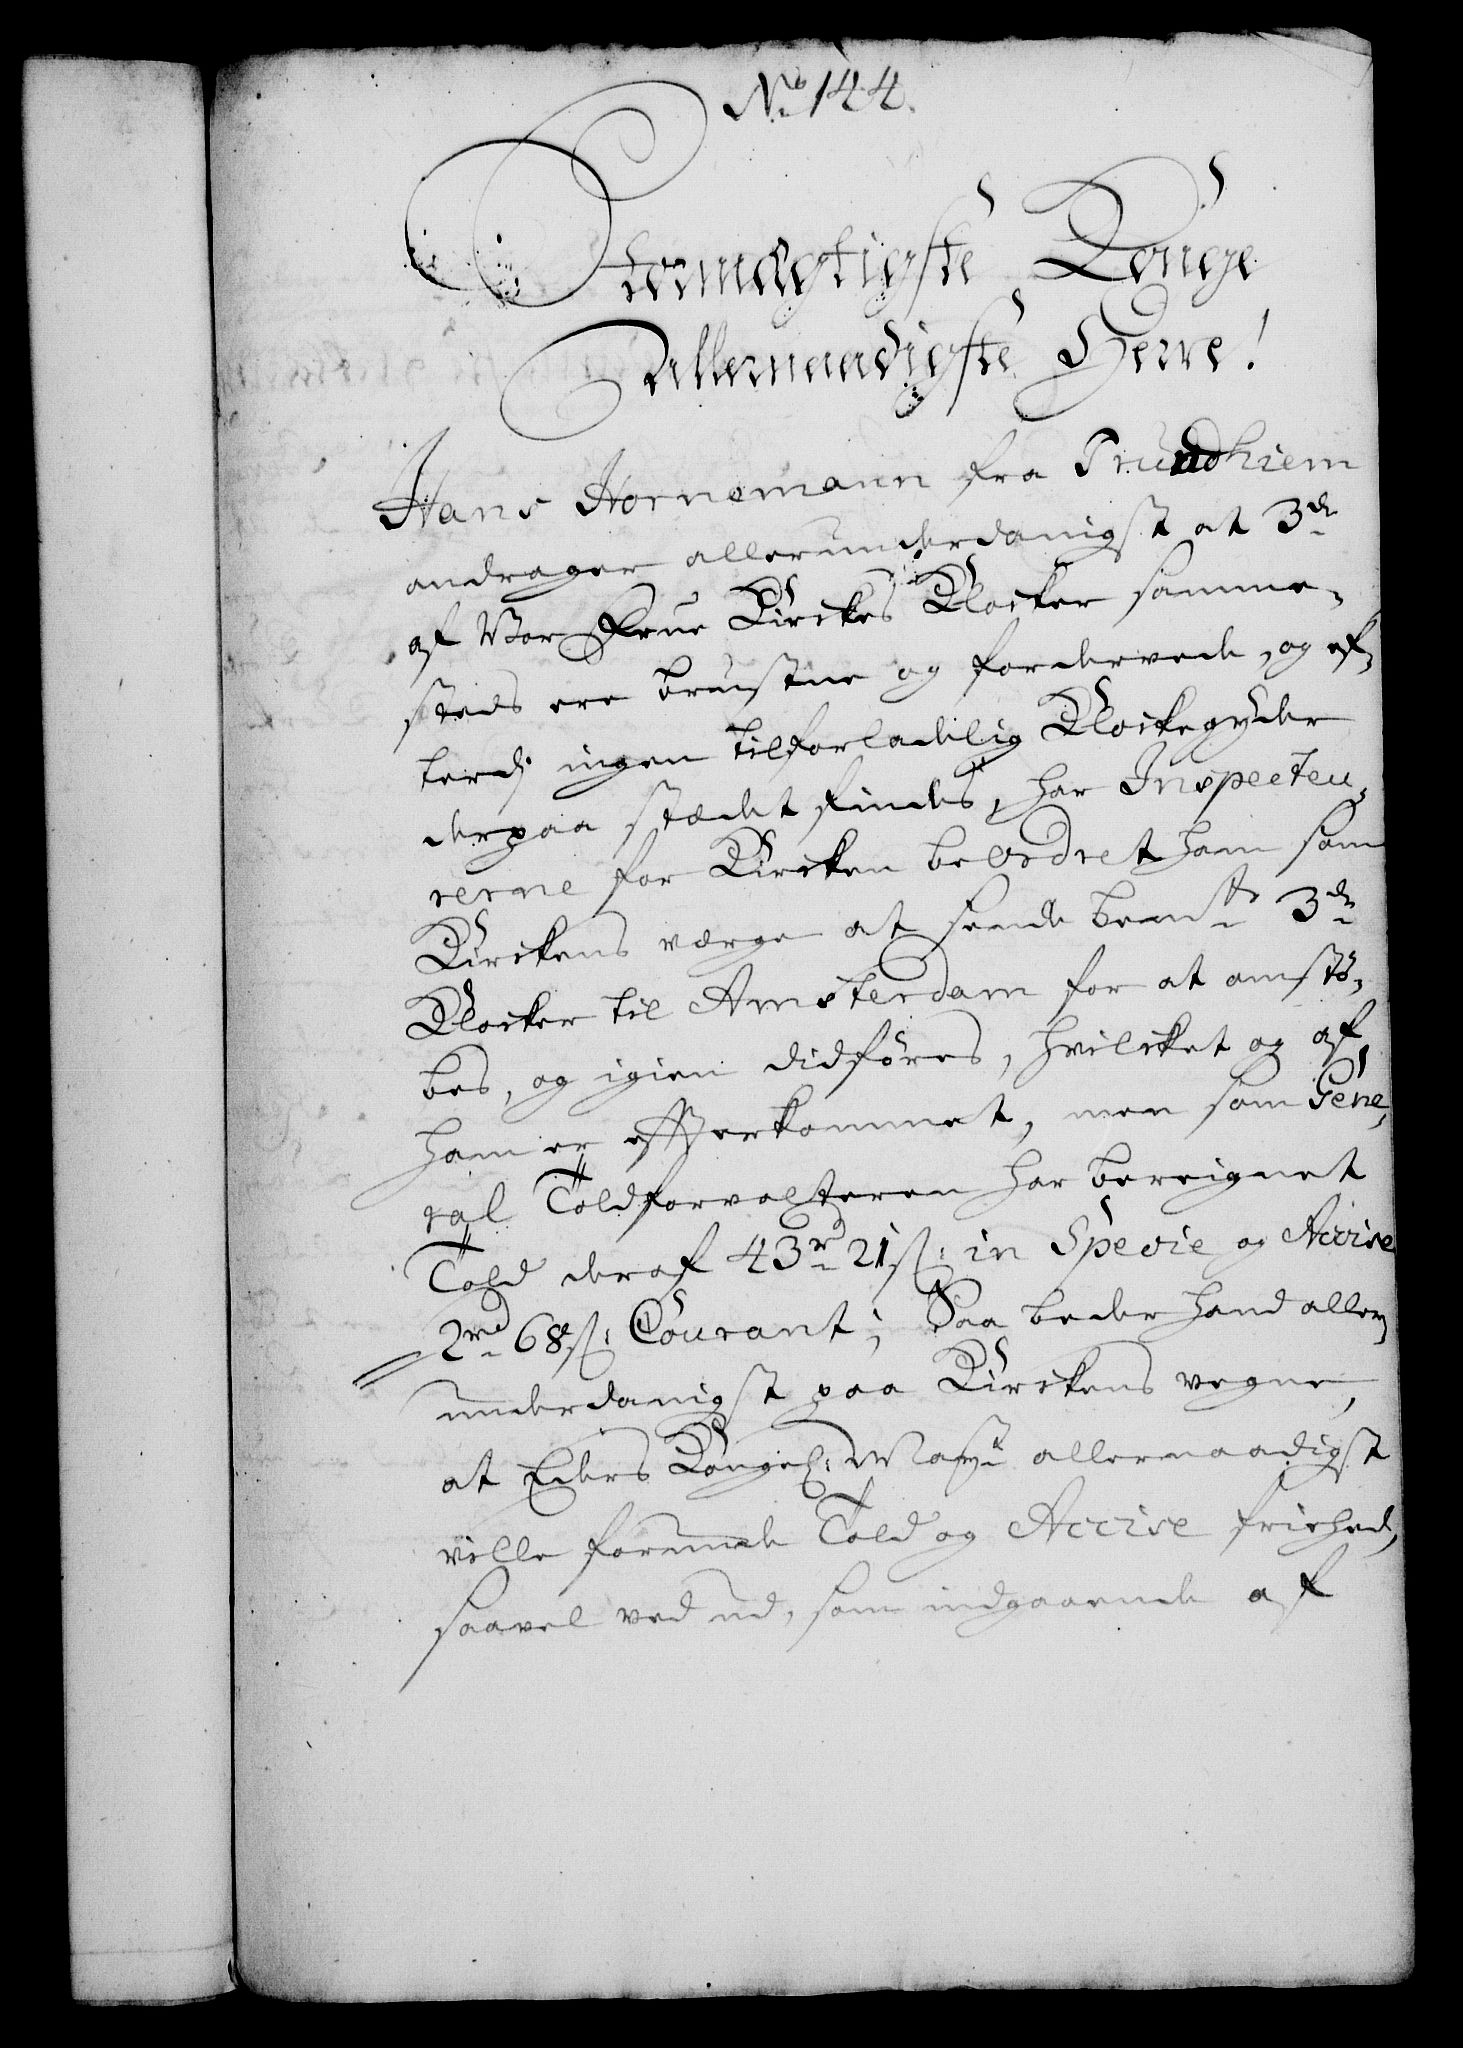 No 144.
Stormægtigste Konge
Allernaadigste Herre!
Hans Hornemann fra Trundhiem
andrager allerunderdanigst at 3de
af Vor Frue Kirckes Klocker samme-
steds ere brustne og fordervede, og ef-
terdj ingen tilforladelig Klockegyder
derpaa stædet findes, har Inspecteu-
rerne for Kircken beordret ham som
Kirckens værge at sende bemte 3de
Klocker til Amsterdam for at omstö-
bes, og igien didföres, hvilcket og af
ham er efterkommet, men som Gene-
ral Toldforvalteren har bereignet
Told deraf 43rd 21 ß: in Specie og Accise
2rd 68 ß: Courant; Saa beder hand aller-
underdanigst paa Kirckens vegne,
at Eders Kongel: Mayt allernaadigst
ville forunde Told og Accise frihed,
saavel ved ud, som indgaaende af